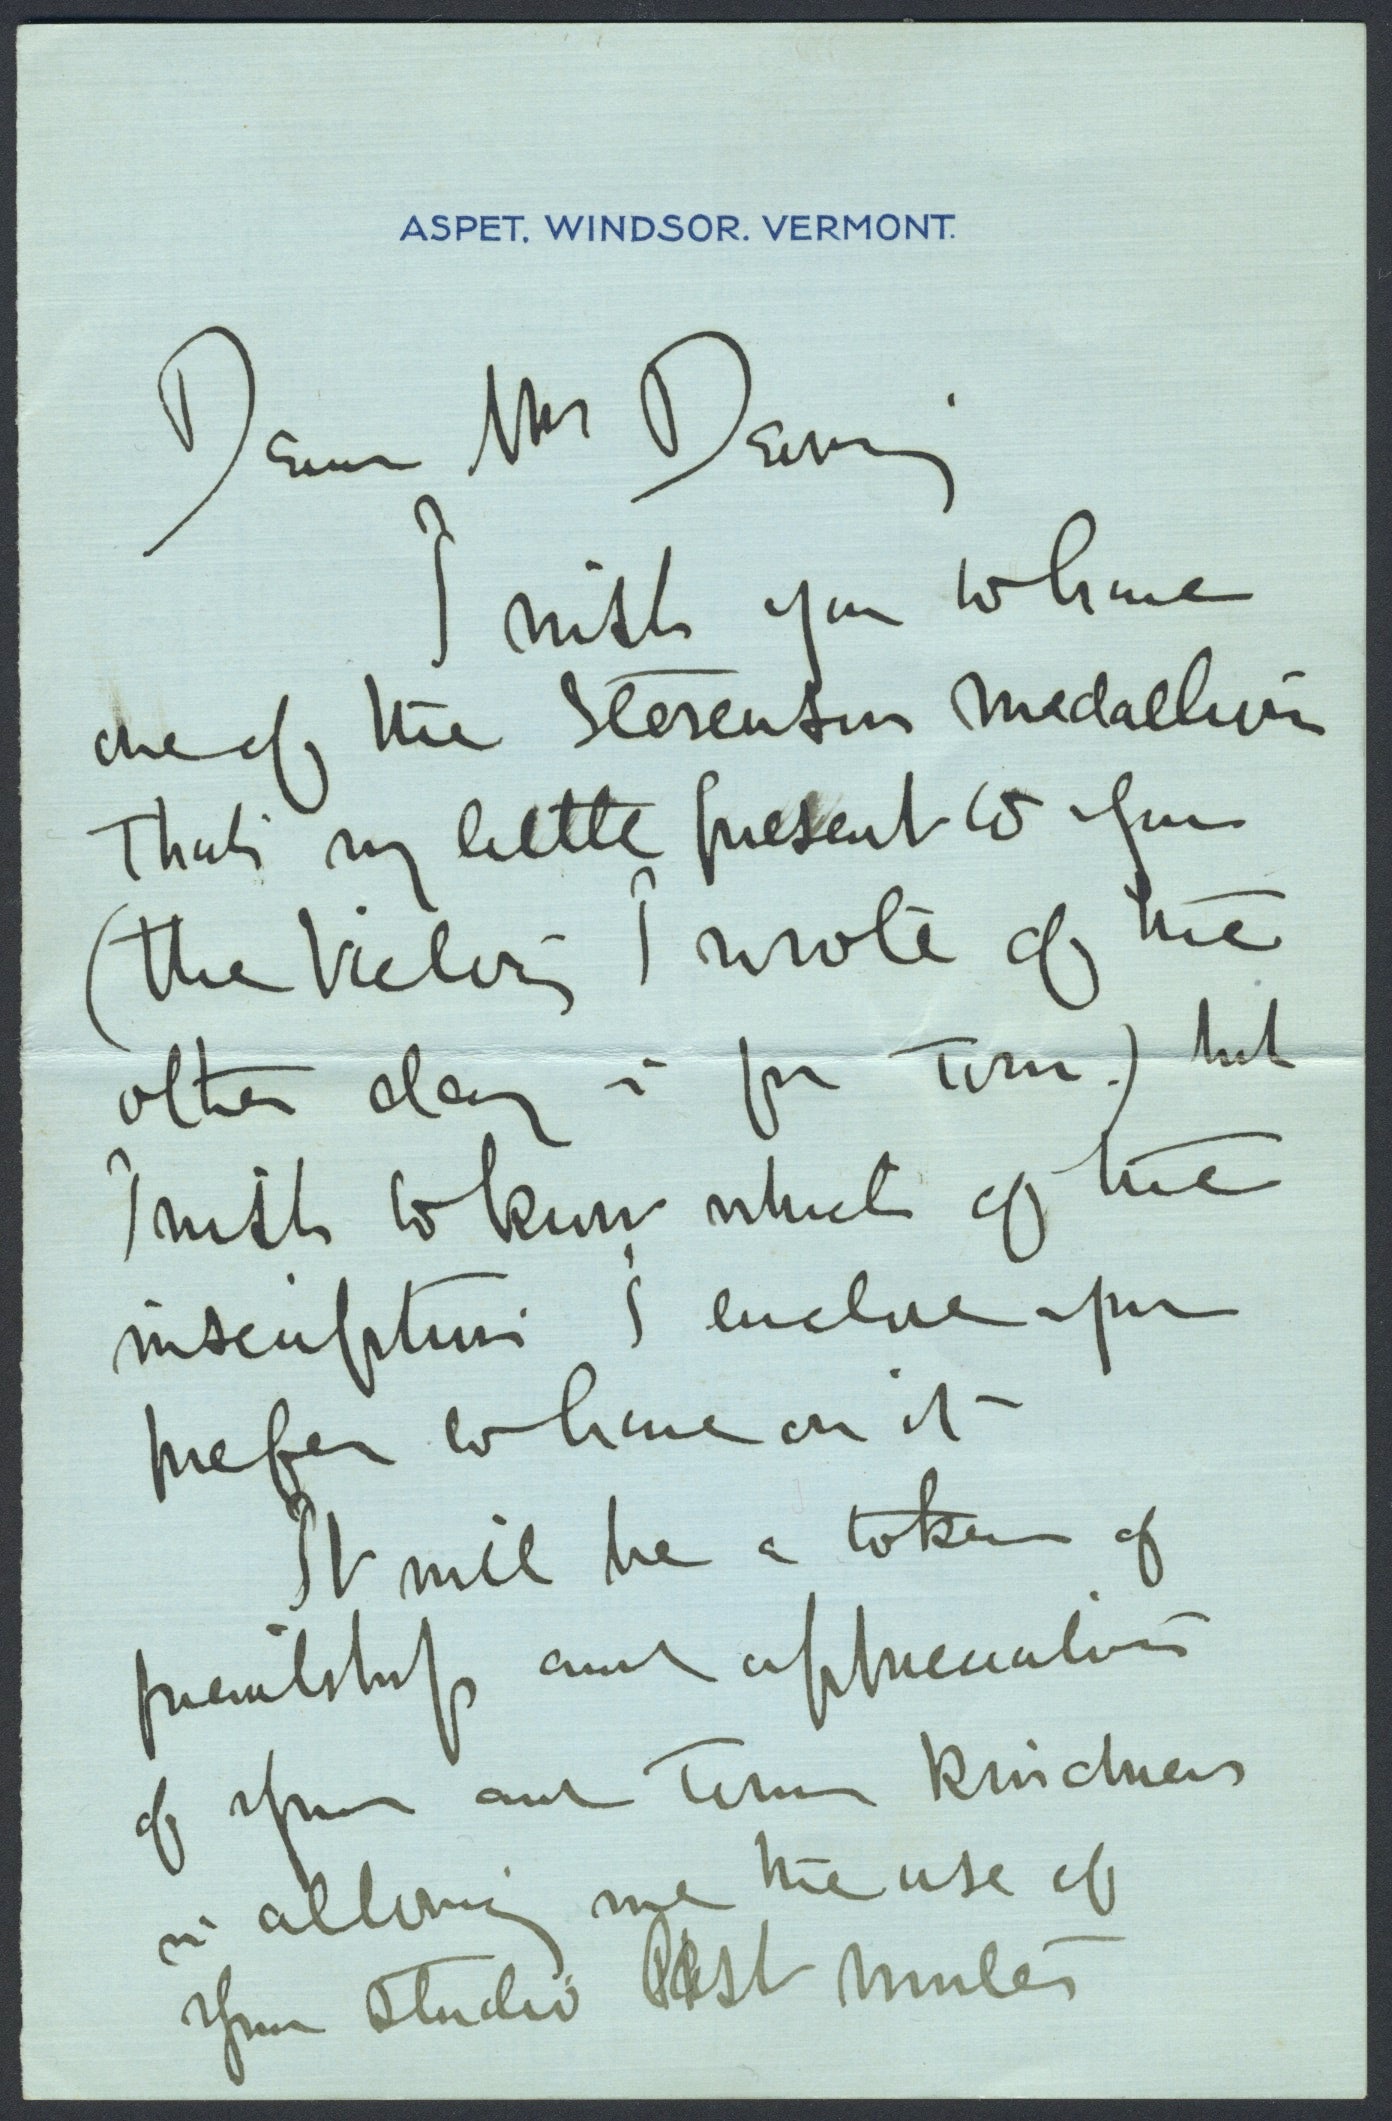 ASPET. WINDSOR. VERMONT.
Dear Mrs Dewing
I wish you to have
one of the Stevenson medallions
That's my little present to you
(the Victory I wrote of the
other day is for Tom.) but
I wish to know which of the
inscriptions I enclose you
prefer to have on it
It will be a token of
friendship and appreciation
of your and Toms kindness
in allowing me the use of
your studio last winter